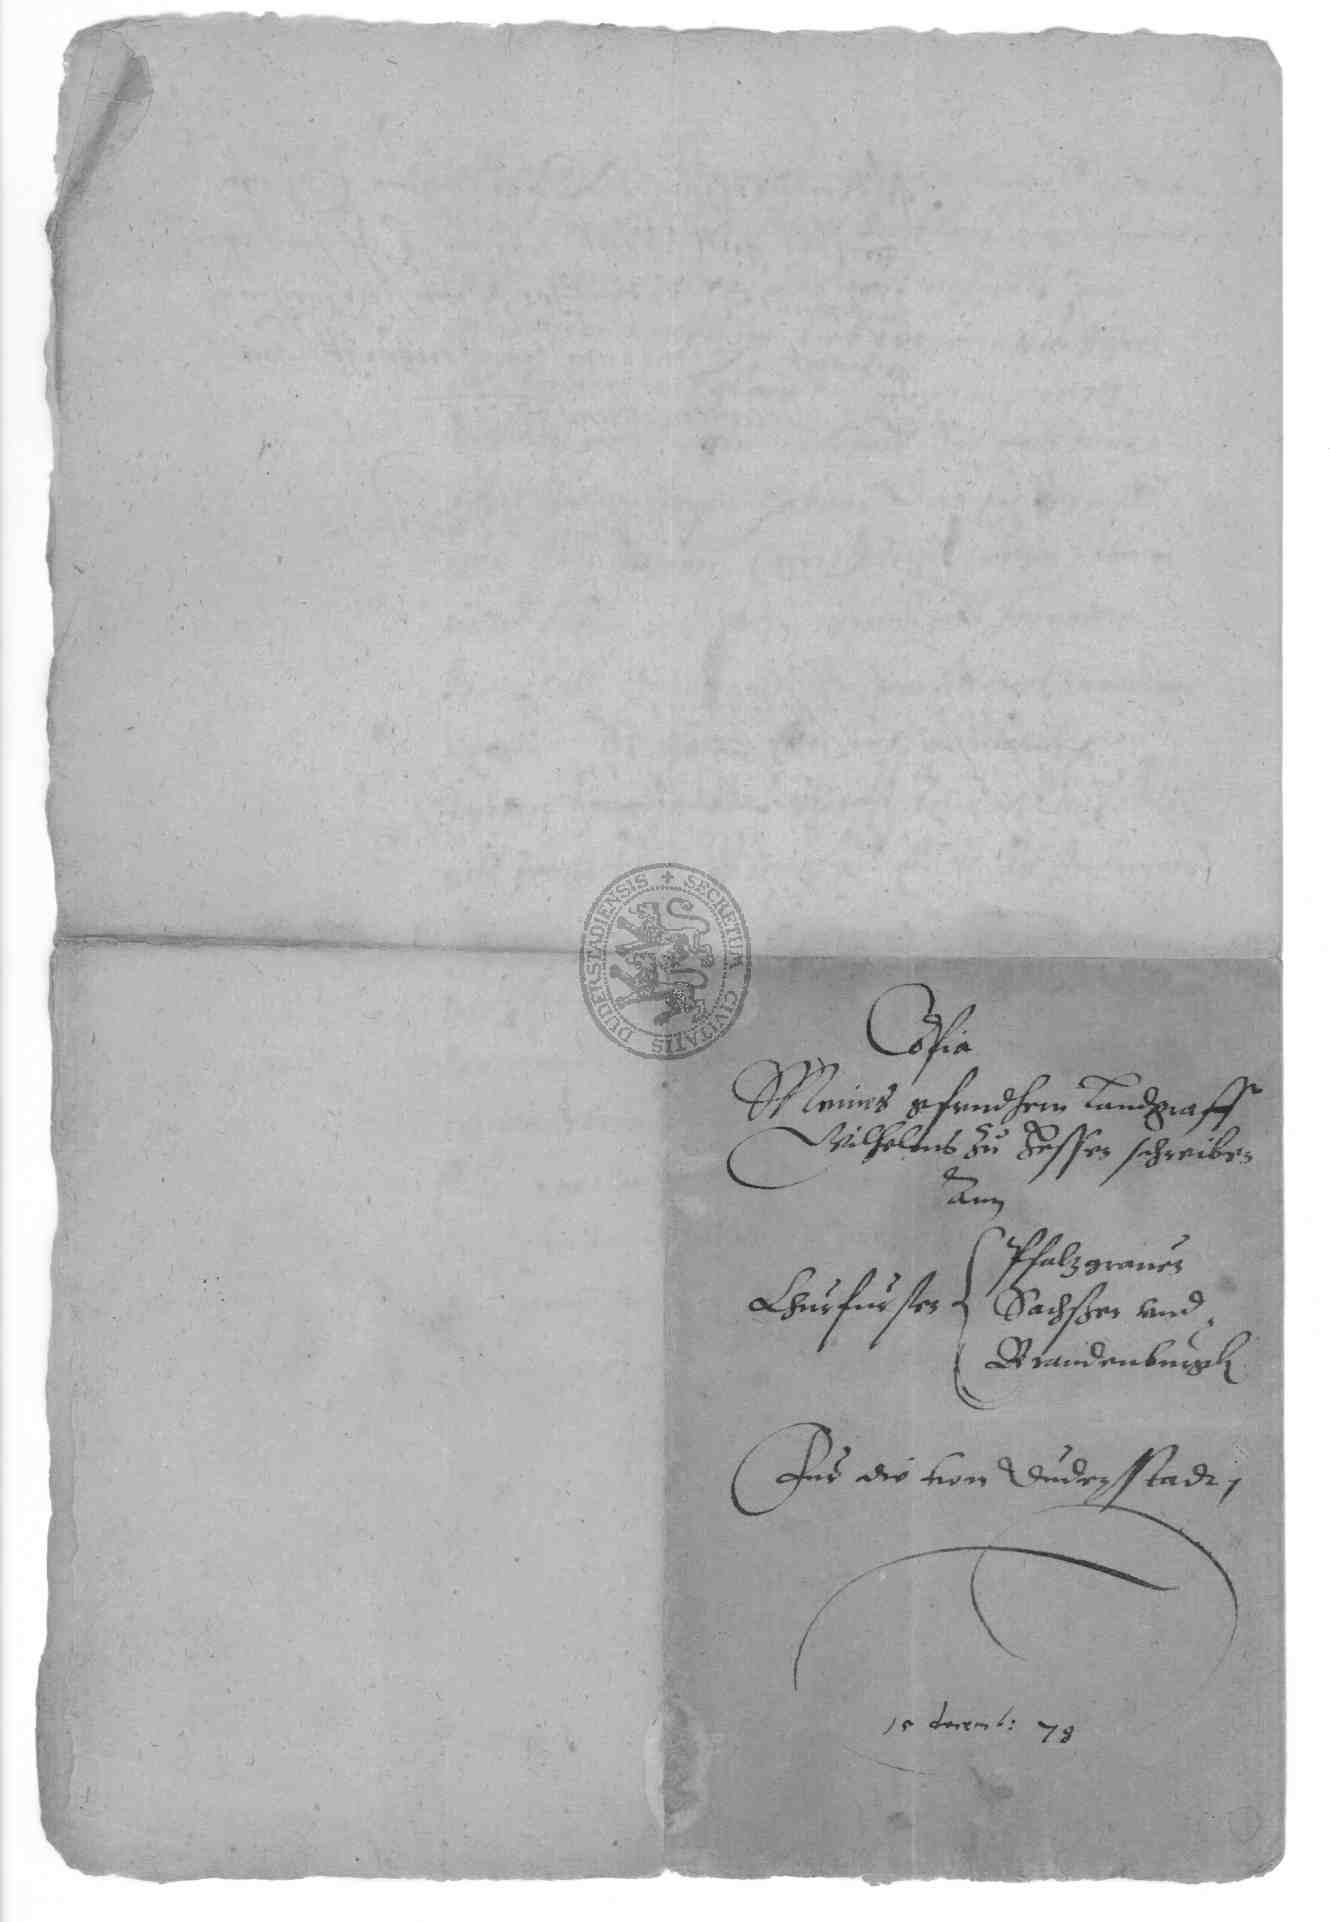 SECRETUM CIVITATIS DUDERSTADIENSIS
Copia
Meines g furst hern Landgraff
Wilhelms zu Hessen schreiben
Ann
Churfursten
Pfalzgrauen
Sachssen vnd
Brandenburgk
Fur die von Duderstadt
15 decemb: 78